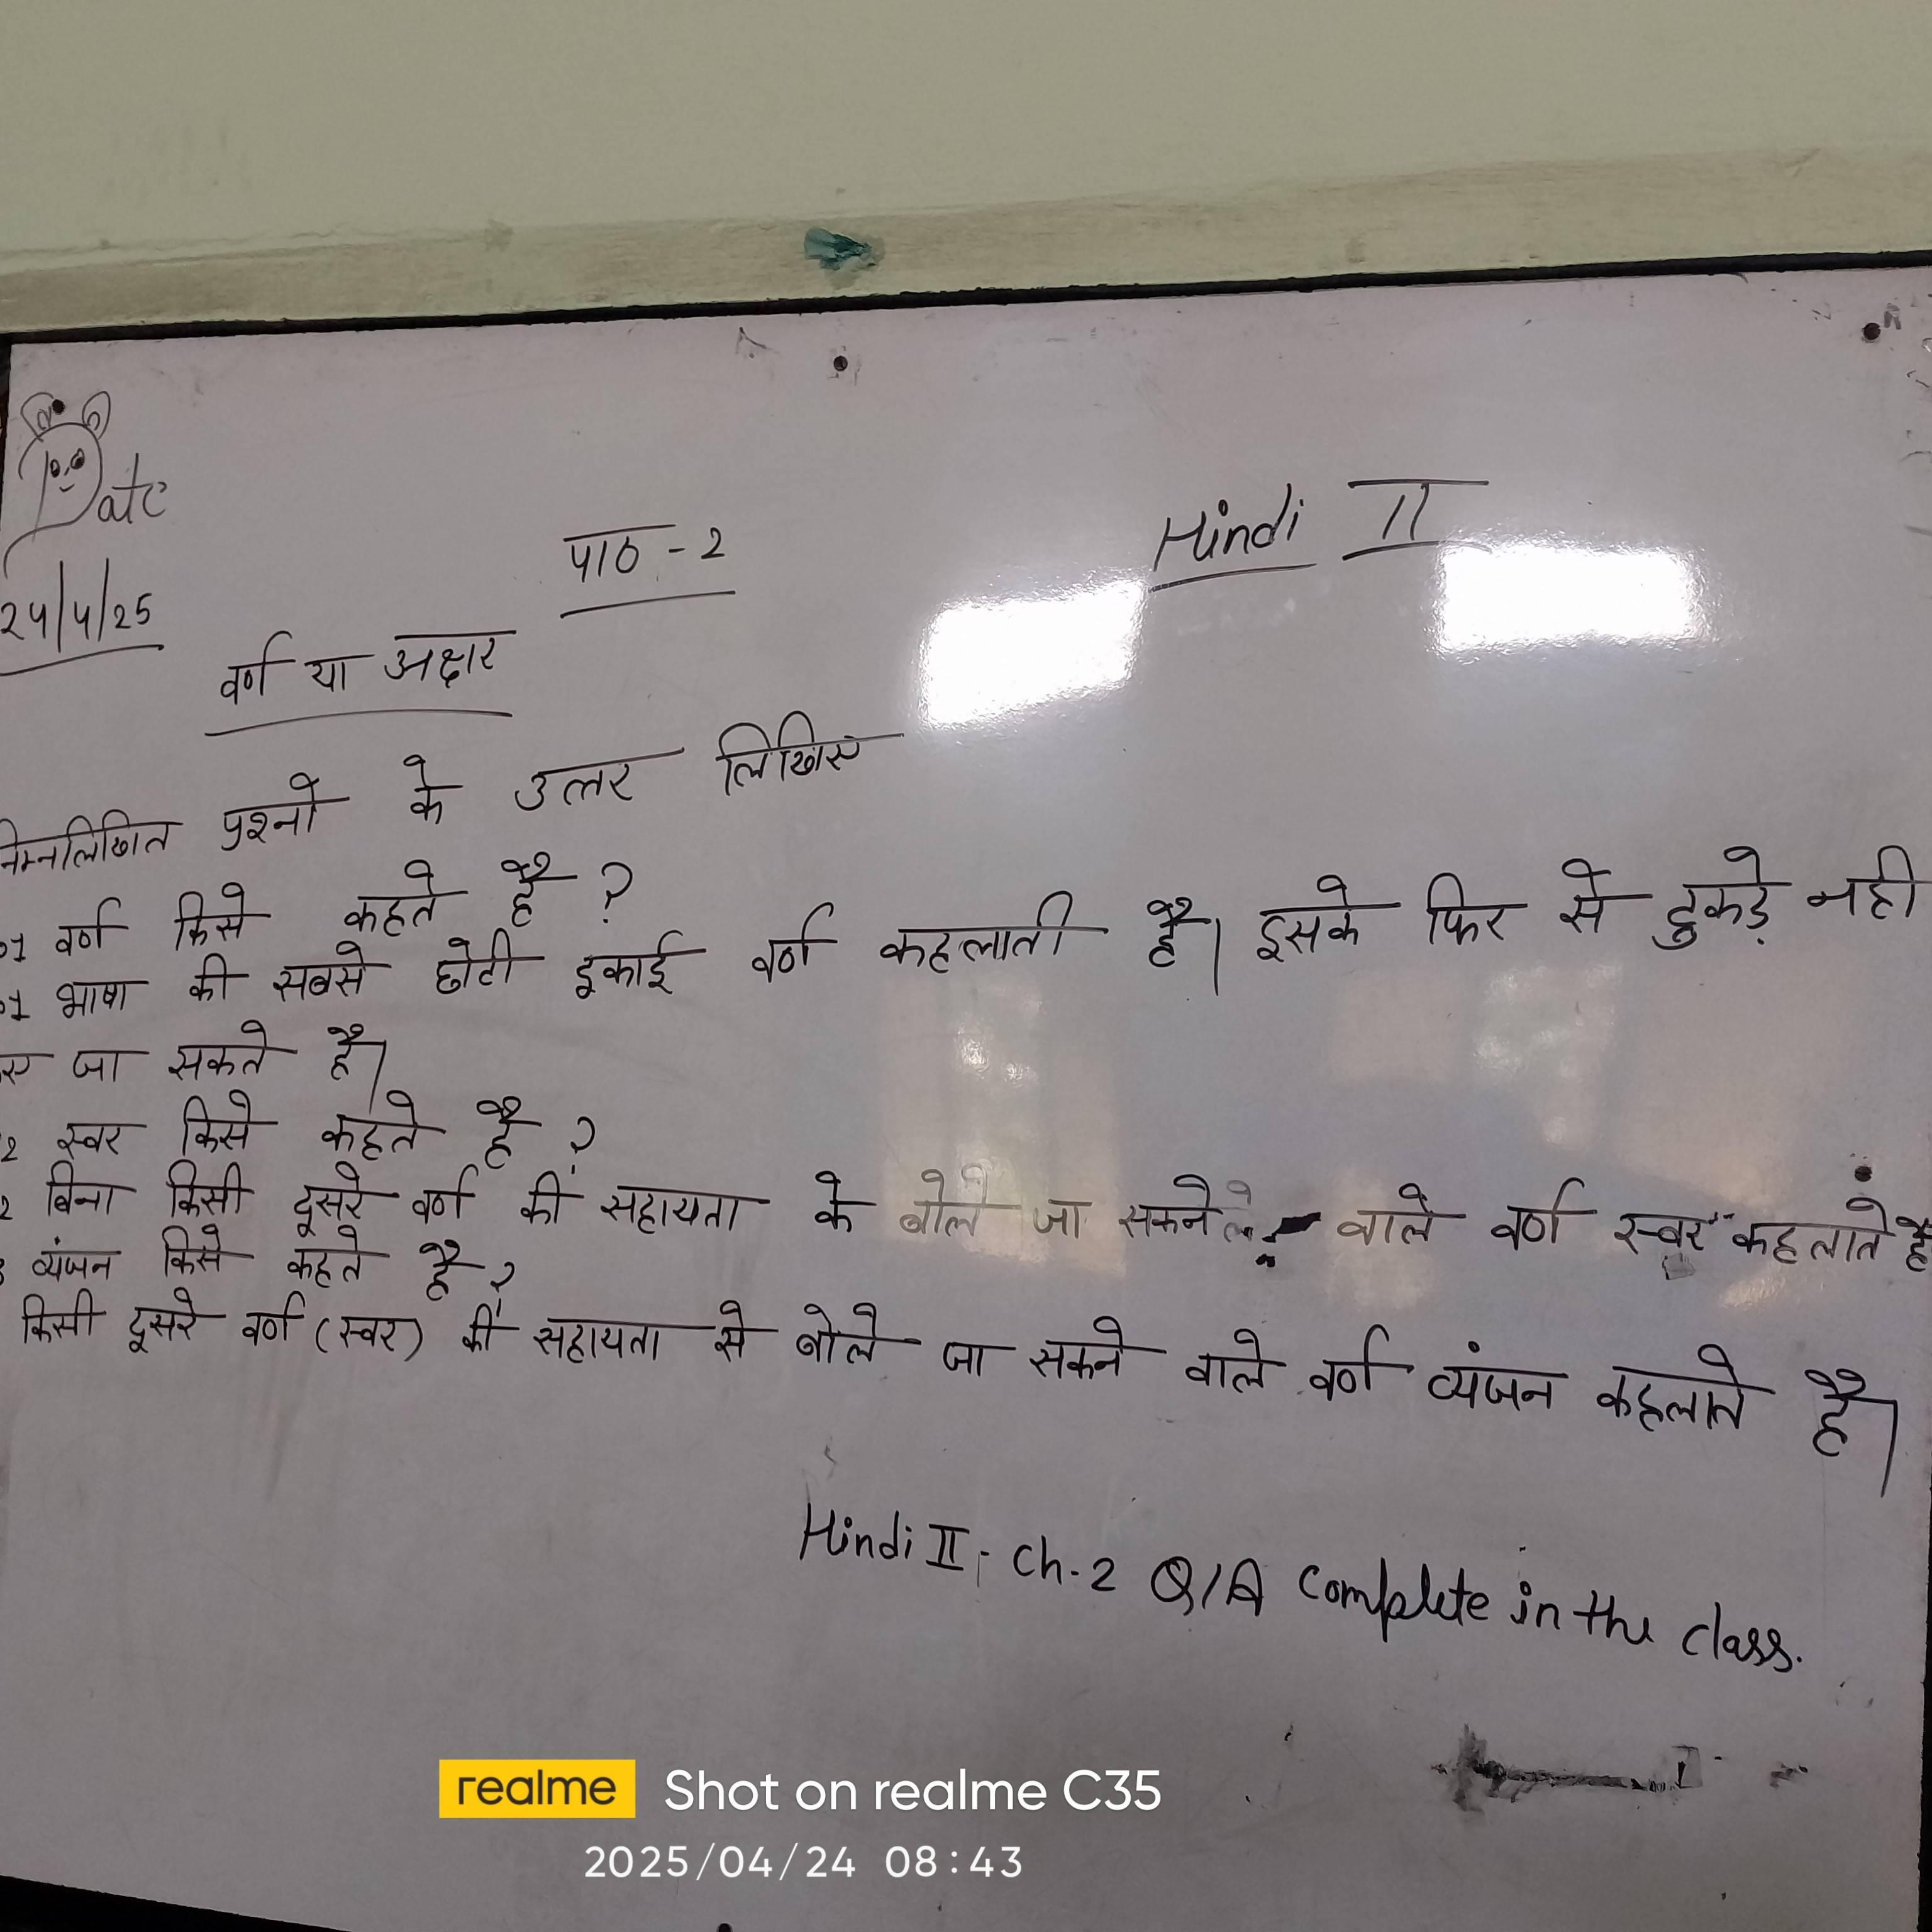 Date
24/4/25
पाठ - 2
Hindi II
वर्ण या अक्षर
निम्नलिखित प्रश्नो के उत्तर लिखिए
01 वर्ण किसे कहते है ?
01 भाषा की सबसे छोटी इकाई वर्ण कहलाती है। इसके फिर से टुकड़े नही
जा सकते है।
2 स्वर किसे कहते है ?
2 बिना किसी दूसरे वर्ण की सहायता के बोले जा सकने वाले वर्ण स्वर कहलाते है
3 व्यंजन किसे कहते है ?
किसी दूसरे वर्ण (स्वर) की सहायता से बोले जा सकने वाले वर्ण व्यंजन कहलाते है।
Hindi II - Ch-2 Q/A Complete in the class.
realme Shot on realme C35
2025/04/24 08:43